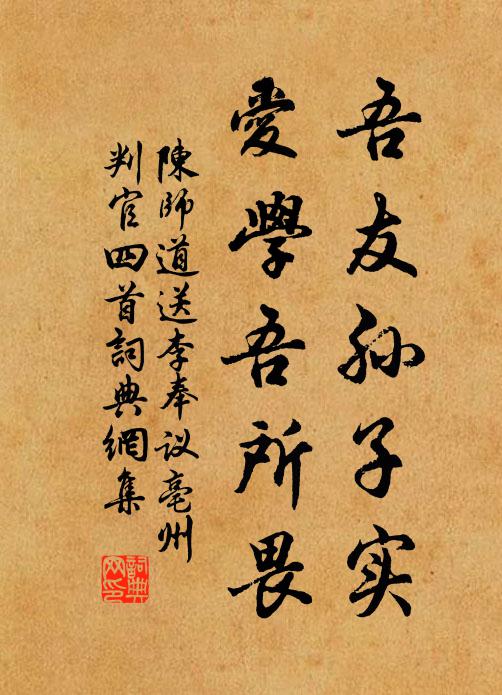 吾友孙子实
愛學吾所畏
陳師道送李奉议亳州
判官四首詞典網集
詞典網印